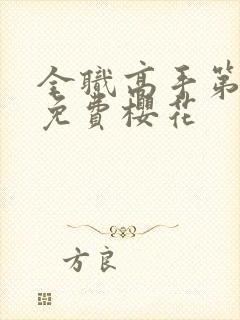 全職高手第
免費櫻花
方良